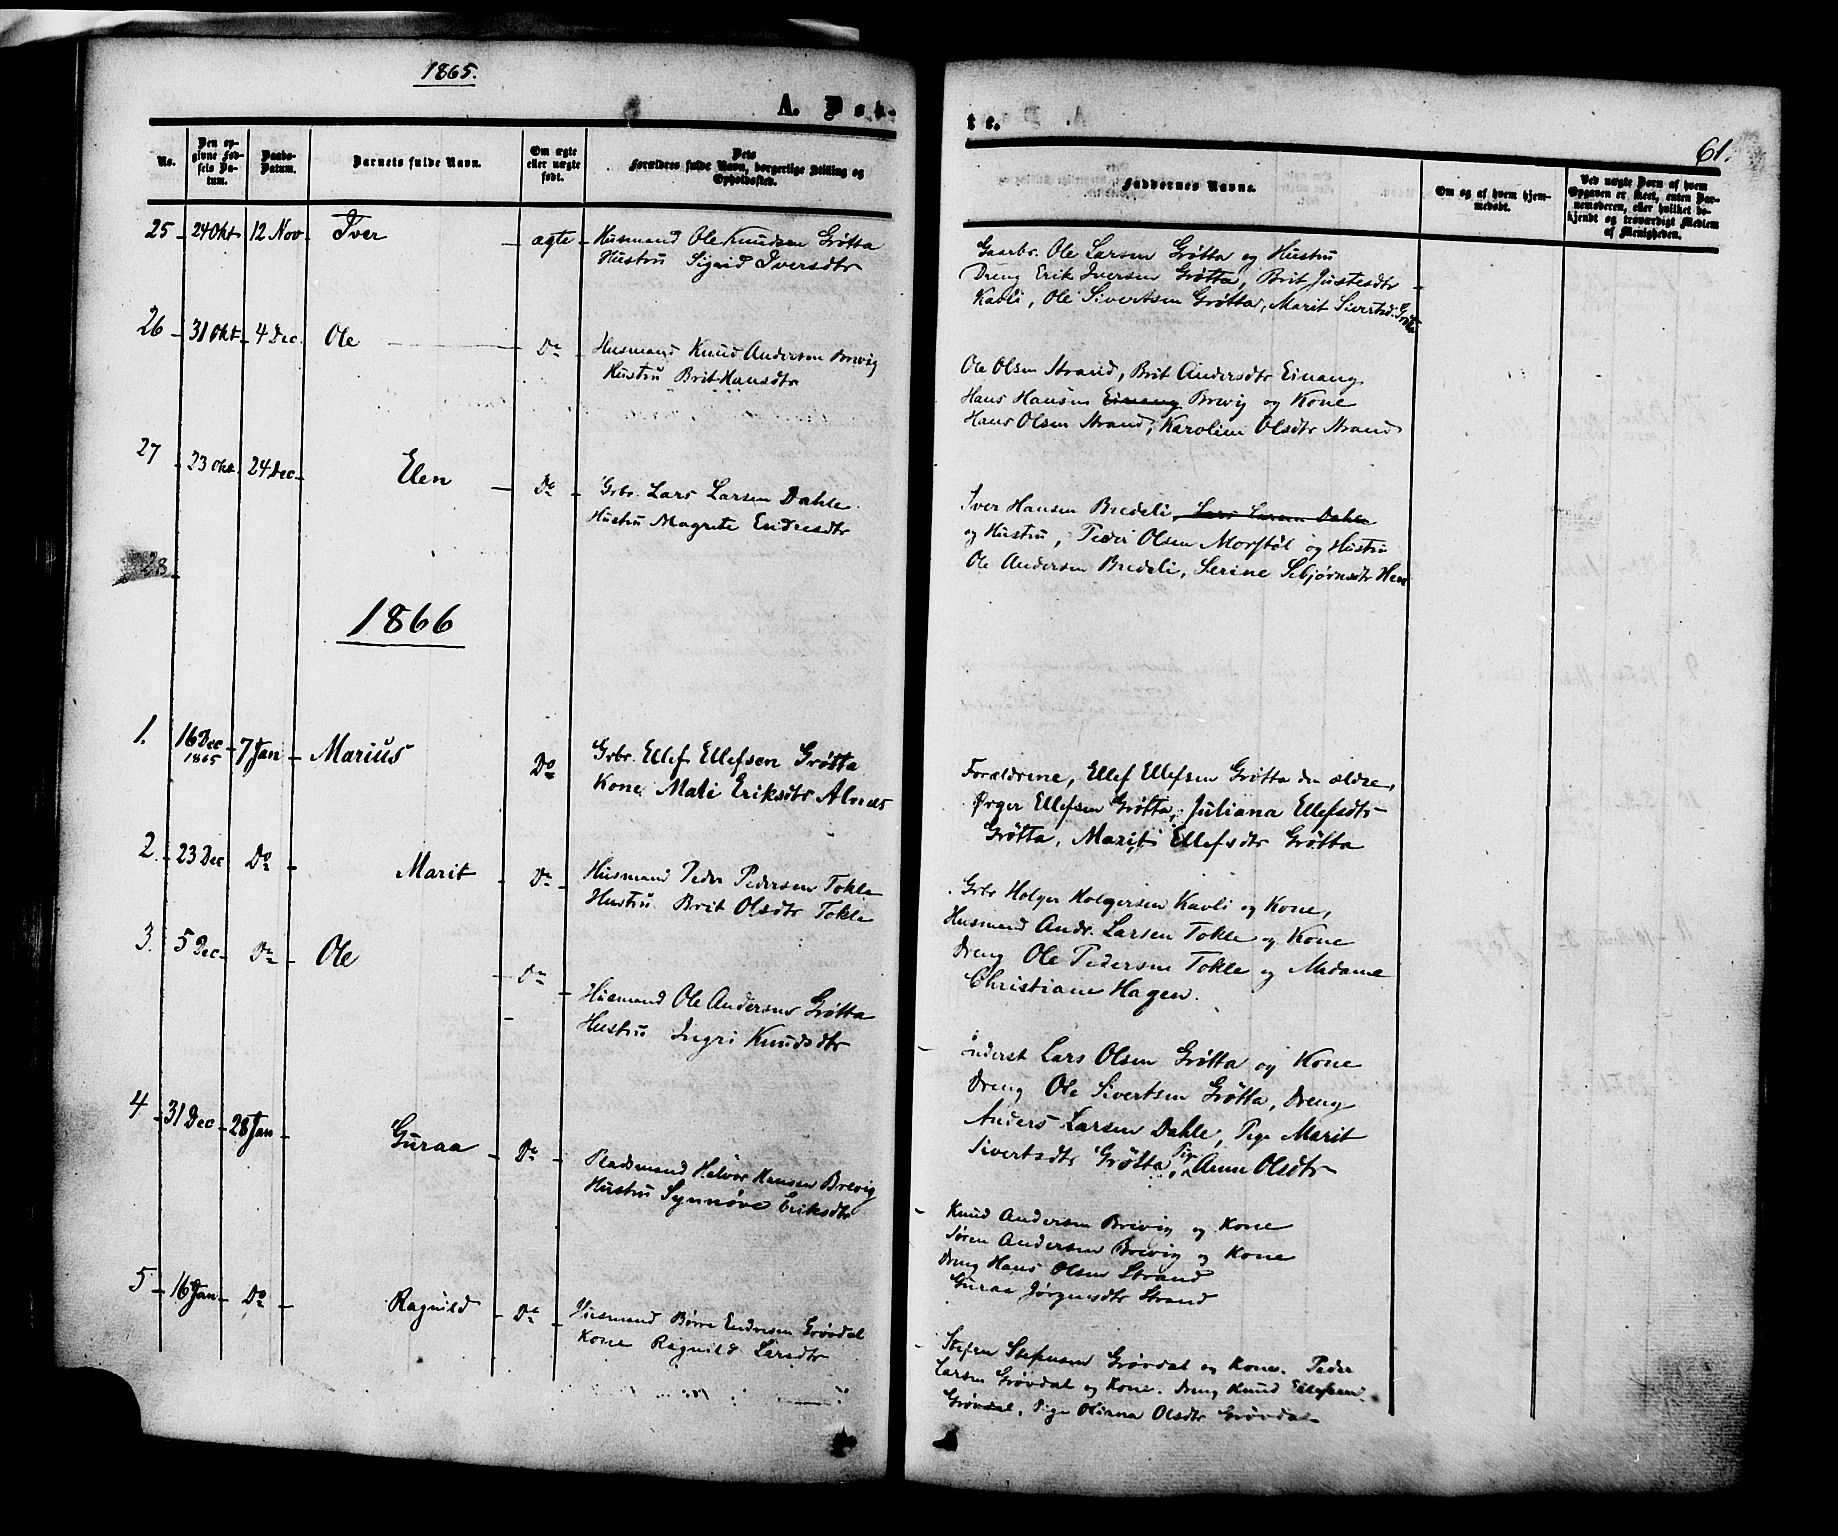 1865.
A. Døb-
No.
Den op-
givne Fød-
sels Da-
tum.
Daabs-
Datum.
Barnets fulde Navn.
Om ægte
eller uægte
født.
Dets
Forældres fulde Navn, borgerlige Stilling og
Opholdssted.
25 24 Okt 12 Nov Iver ægte Husmand Ole Knudsen Grøtta
Hustru Sigrid Iversdtr
26 31 Okt 4 Dec. Ole Do Husmand Knud Andersen Brevig
Hustru Brit Hansdtr
27 23 Okt. 24 Dec Elen Do Grbr. Lars Larsen Dahle.
Hustru Magrete Endresdtr
28
1866
1. 16 Dec 1865 7 Jan Marius Do Grbr. Ellef Ellefsen Grøtta
Kone Mali Eriksdtr Alnes
2. 23 Dec Do Marit Do Husmand Peder Pedersen Tokle
Hustru Brit Olsdtr Tokle
3. 5 Dec. Do Ole Do Husmand Ole Andersen Grøtta
Hustru Ingri Knudsdtr
4 31 Dec 28 Jan Guraa Do Pladsmand Halvor Hansen Brevig
Hustru Synnøve Eriksdtr
5 16 Jan Do Ragnild Do Husmand Børre Endresen Grøvdal
Kone Ragnild Larsdtr
te.
61.
Faddernes Navne.
Om og af hvem hjem-
medøbt.
Ved uægte Børn af hvem
Opgaven er skeet, enten Bar-
nemoderen, eller hvilket be-
kjendt og troværdigt Medlem
af Menigheden.
Gaarbr. Ole Larsen Grøtta og Hustru
Dreng Erik Iversen Grøtta, Brit Justesdtr
Kavli, Ole Sivertsen Grøtta, Marit Sivertsd. Grøtta
Ole Olsen Strand, Brit Andersdtr Einang
Hans Hansen Einang Brevig og Kone
Hans Olsen Strand, Karoline Olsdtr Strand
Iver Hansen Bredeli, Lars Larsen Dahle
og Hustru, Peder Olsen Morstøl og Hustru
Ole Andersen Bredeli, Serine Sebjørnsdtr Hen
Forældrene, Ellef Ellefsen Grøtta den ældre,
Ørger Ellefsen Grøtta, Juliana Ellefsdtr
Grøtta, Marit Ellefsdtr Grøtta
Grbr Holger Holgersen Kavli og Kone,
Husmand Andr. Larsen Tokle og Kone
Dreng Ole Pedersen Tokle og Madame
Christiane Hagen.
Lars Olsen Grøtta og Kone
Dreng Ole Sivertsen Grøtta, Dreng
Anders Larsen Dahle, Pige Marit
Sivertsdtr Grøtta, Pige Anne Olsdtr
Knud Andersen Brevig og Kone
Søren Andersen Brevig og Kone
Dreng Hans Olsen Strand
Guraa Jørgensdtr Strand
Stefen Stefensen Grøvdal og Kone. Peder
Larsen Grøvdal og Kone. Dreng Knud Ellefsen
Grøvdal, Pige Oliana Olsdtr Grøvdal